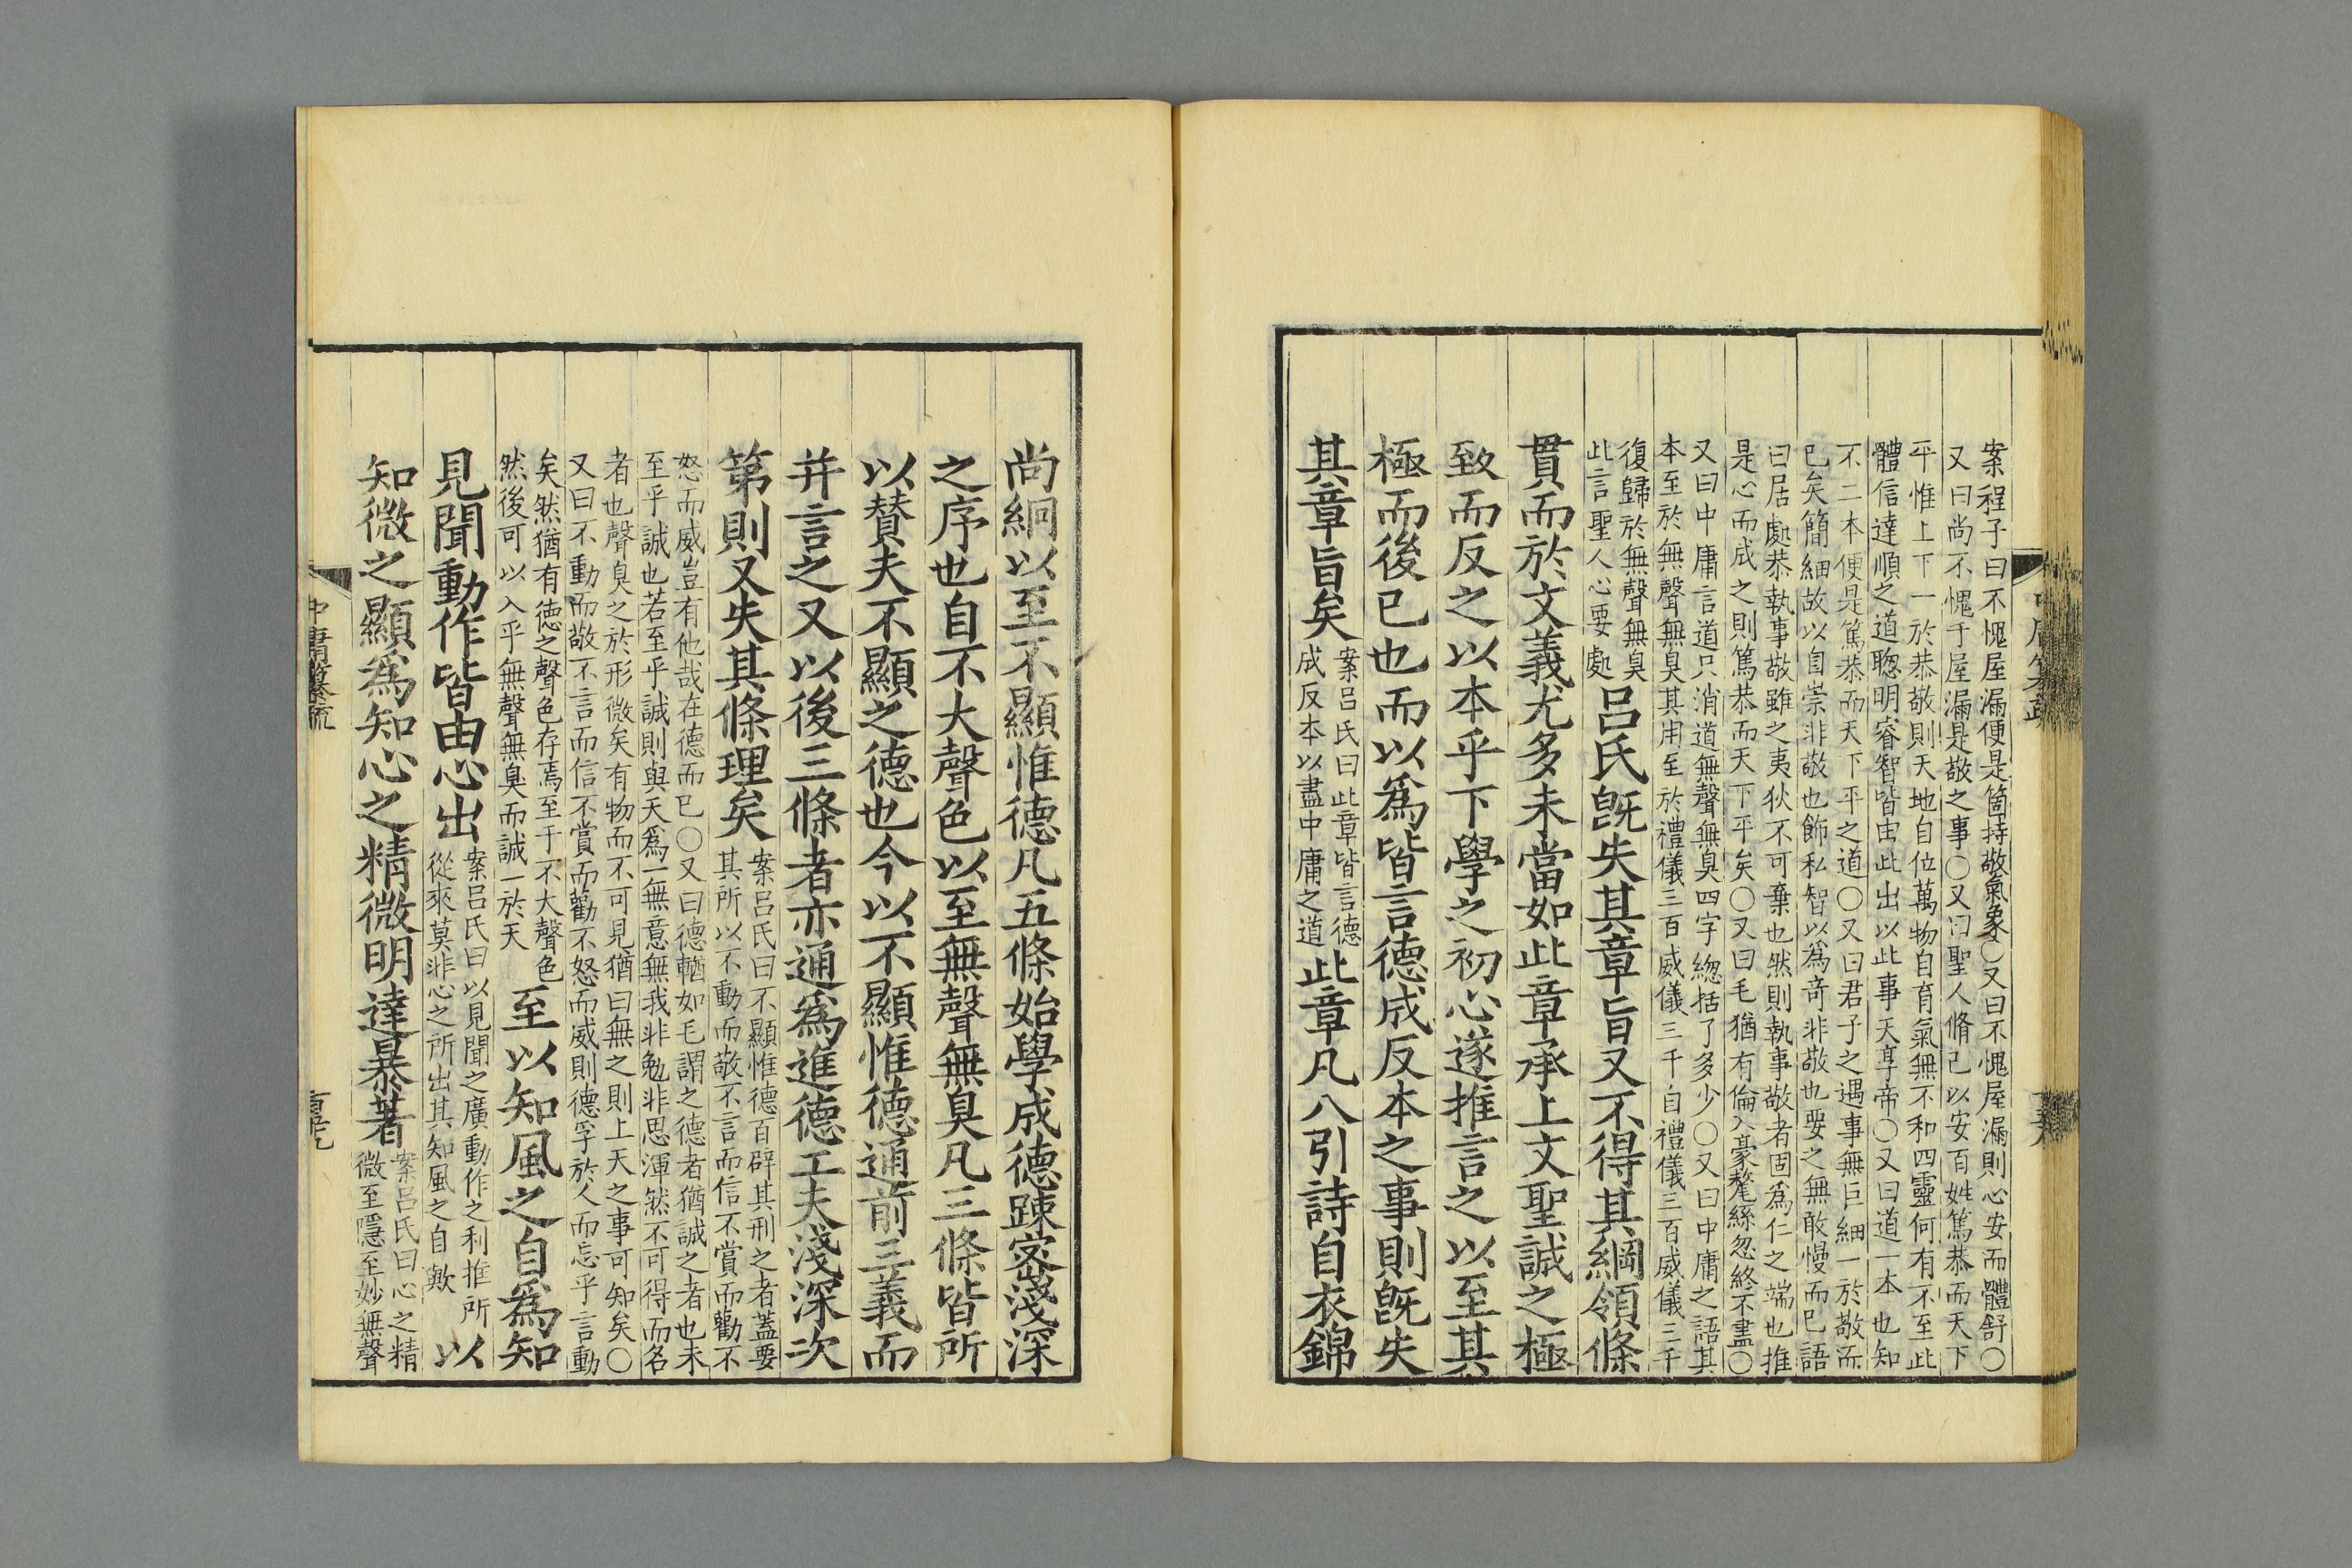 案程子曰不愧屋漏便是箇持敬氣象○又曰不愧屋漏則心安而體舒○
又曰尚不愧于屋漏是敬之事○又曰聖人脩己以安百姓篤恭而天下
平惟上下一於恭敬則天地自位萬物自育氣無不和四靈何有不至此
體信達順之道聰明睿智皆由此出以此事天享帝○又曰道一本也知
不二本便是篤恭而天下平之道○又曰君子之遇事無巨細一於敬而
已矣簡細故以自崇非敬也飾私智以爲奇非敬也要之無敢慢而已語
曰居處恭執事敬雖之夷狄不可棄也然則執事敬者固爲仁之端也推
是心而成之則篤恭而天下平矣○又曰毛猶有倫入豪氂絲忽終不盡○
又曰中庸言道只消道無聲無臭四字緫括了多少○又曰中庸之語其
本至於無聲無臭其用至於禮儀三百威儀三千自禮儀三百威儀三千
復歸於無聲無臭
此言聖人心要處
呂氏旣失其章旨又不得其綱領條
貫而於文義尤多未當如此章承上文聖誠之極
致而反之以本乎下學之初心遂推言之以至其
極而後已也而以爲皆言德成反本之事則旣失
其章旨矣
案呂氏曰此章皆言德
成反本以盡中庸之道
此章凡八引詩自衣錦
尚絅以至不顯惟德凡五條始學成德踈宻淺深
之序也自不大聲色以至無聲無臭凡三條皆所
以賛夫不顯之德也今以不顯惟德通前三義而
并言之又以後三條者亦通爲進德工夫淺深次
第則又失其條理矣
案呂氏曰不顯惟德百辟其刑之者蓋要
其所以不動而敬不言而信不賞而勸不
怒而威豈有他哉在德而已○又曰德輶如毛謂之德者猶誠之者也未
至乎誠也若至乎誠則與天爲一無意無我非勉非思渾然不可得而名
者也聲臭之於形微矣有物而不可見猶曰無之則上天之事可知矣○
又曰不動而敬不言而信不賞而勸不怒而威則德孚於人而忘乎言動
矣然猶有德之聲色存焉至于不大聲色
然後可以入乎無聲無臭而誠一於天
至以知風之自爲知
見聞動作皆由心出
案呂氏曰以見聞之廣動作之利推所
從來莫非心之所出其知風之自歟
以
知微之顯爲知心之精微明達暴著
案呂氏曰心之精
微至隱至妙無聲
中庸纂疏